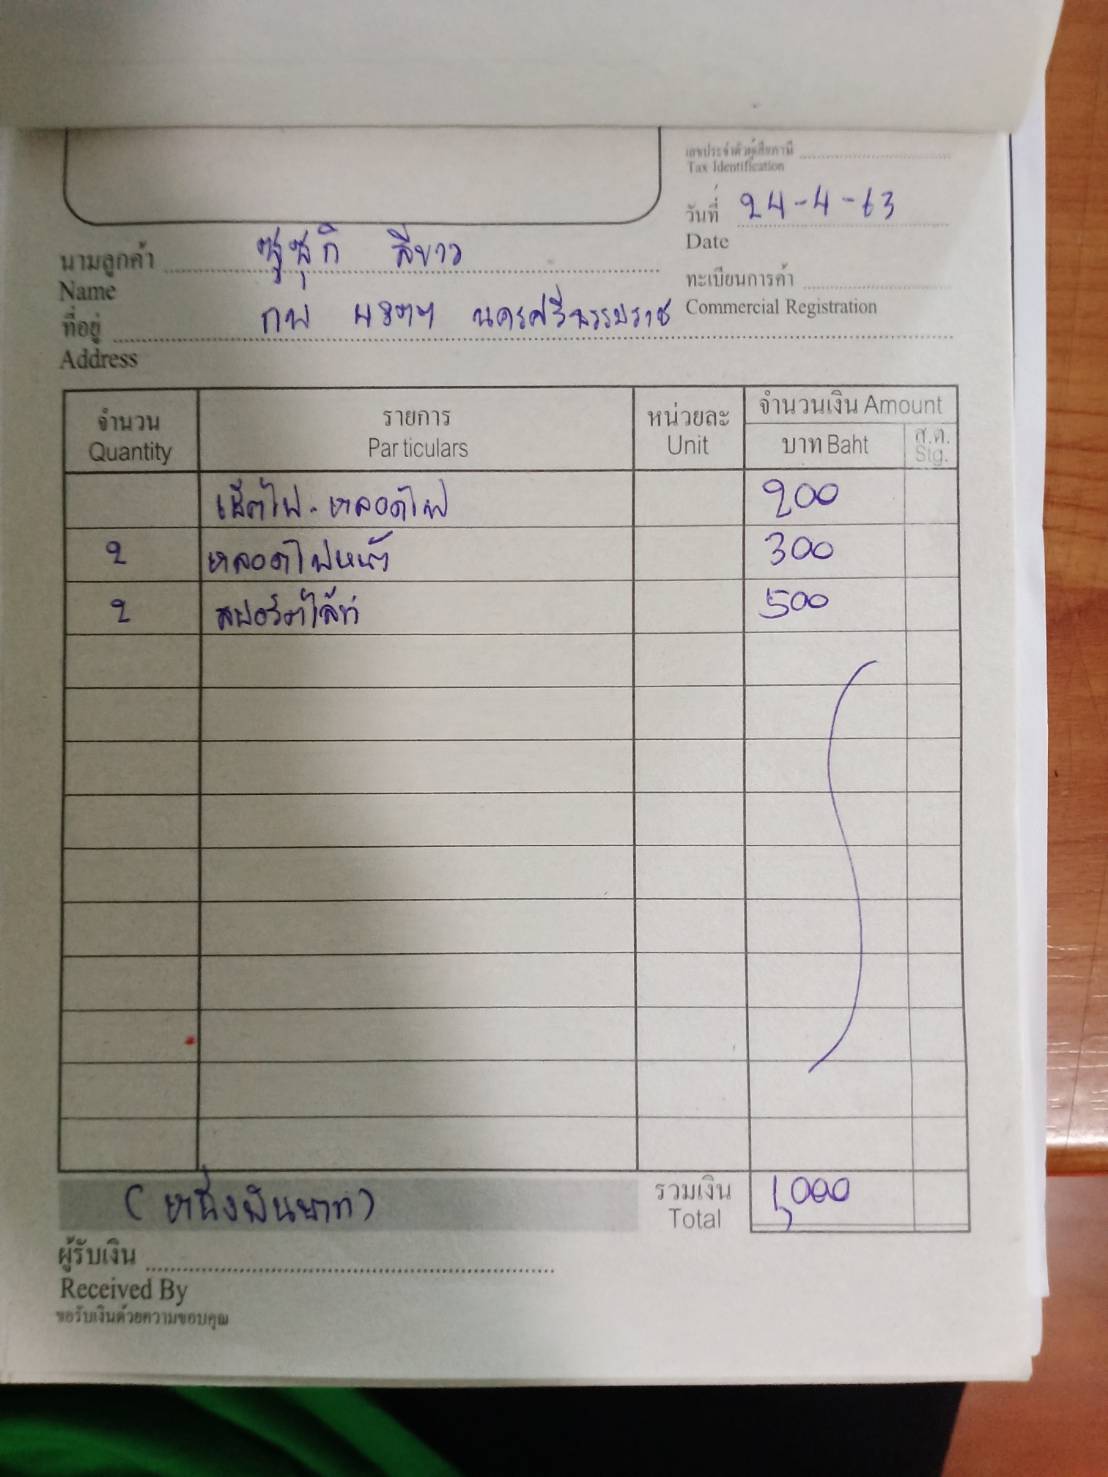 เลขประจำตัวผู้เสียภาษี
Tax Identification
วันที่ 24-4-63
Date
นามลูกค้า ซูซุกิ สีขาว
Name
ทะเบียนการค้า
Commercial Registration
ที่อยู่ กพ นครศรีธรรมราช
Address
จำนวน รายการ หน่วยละ จำนวนเงิน Amount
Quantity Particulars Unit บาท Baht ส.ต. Stg.
เช็คไฟ - หลอดไฟ 200
2 หลอดไฟหน้า 300
2 สปอร์ตไล้ท์ 500
(หนึ่งพันบาท) รวมเงิน 1,000
Total
ผู้รับเงิน
Received By
ขอรับเงินด้วยความขอบคุณ